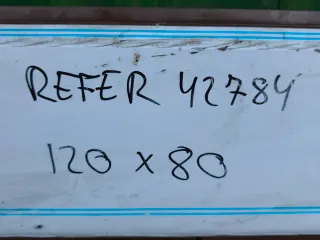 REFER 42784
120 x 80